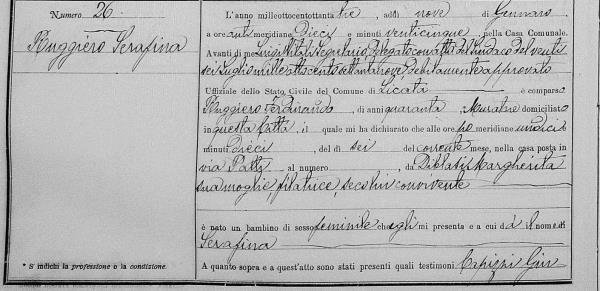 Numero 26.
Ruggiero Serafina
* S'indichi la professione o la condizione.
L'anno milleottocentottanta tre, addì nove di Gennaro
a ore anti meridiane dieci e minuti venticinque, nella Casa Comunale.
Avanti di me Luigi Vitali Segretario delegato con atto del Sindaco del venti
sei Luglio mille ottocento settantanove, debitamente approvato
Uffiziale dello Stato Civile del Comune di Licata è comparso
Ruggiero Ferdinando, di anni quaranta, Muratore domiciliato
in questa Città, il quale mi ha dichiarato che alle ore po meridiane undici
minuti dieci, del dì sei del corrente mese, nella casa posta in
via Patti al numero , da Margherita
sua moglie, filatrice, seco lui convivente
è nato un bambino di sesso femminile che egli mi presenta e a cui dà il nome di
Serafina
A quanto sopra e a quest'atto sono stati presenti quali testimoni